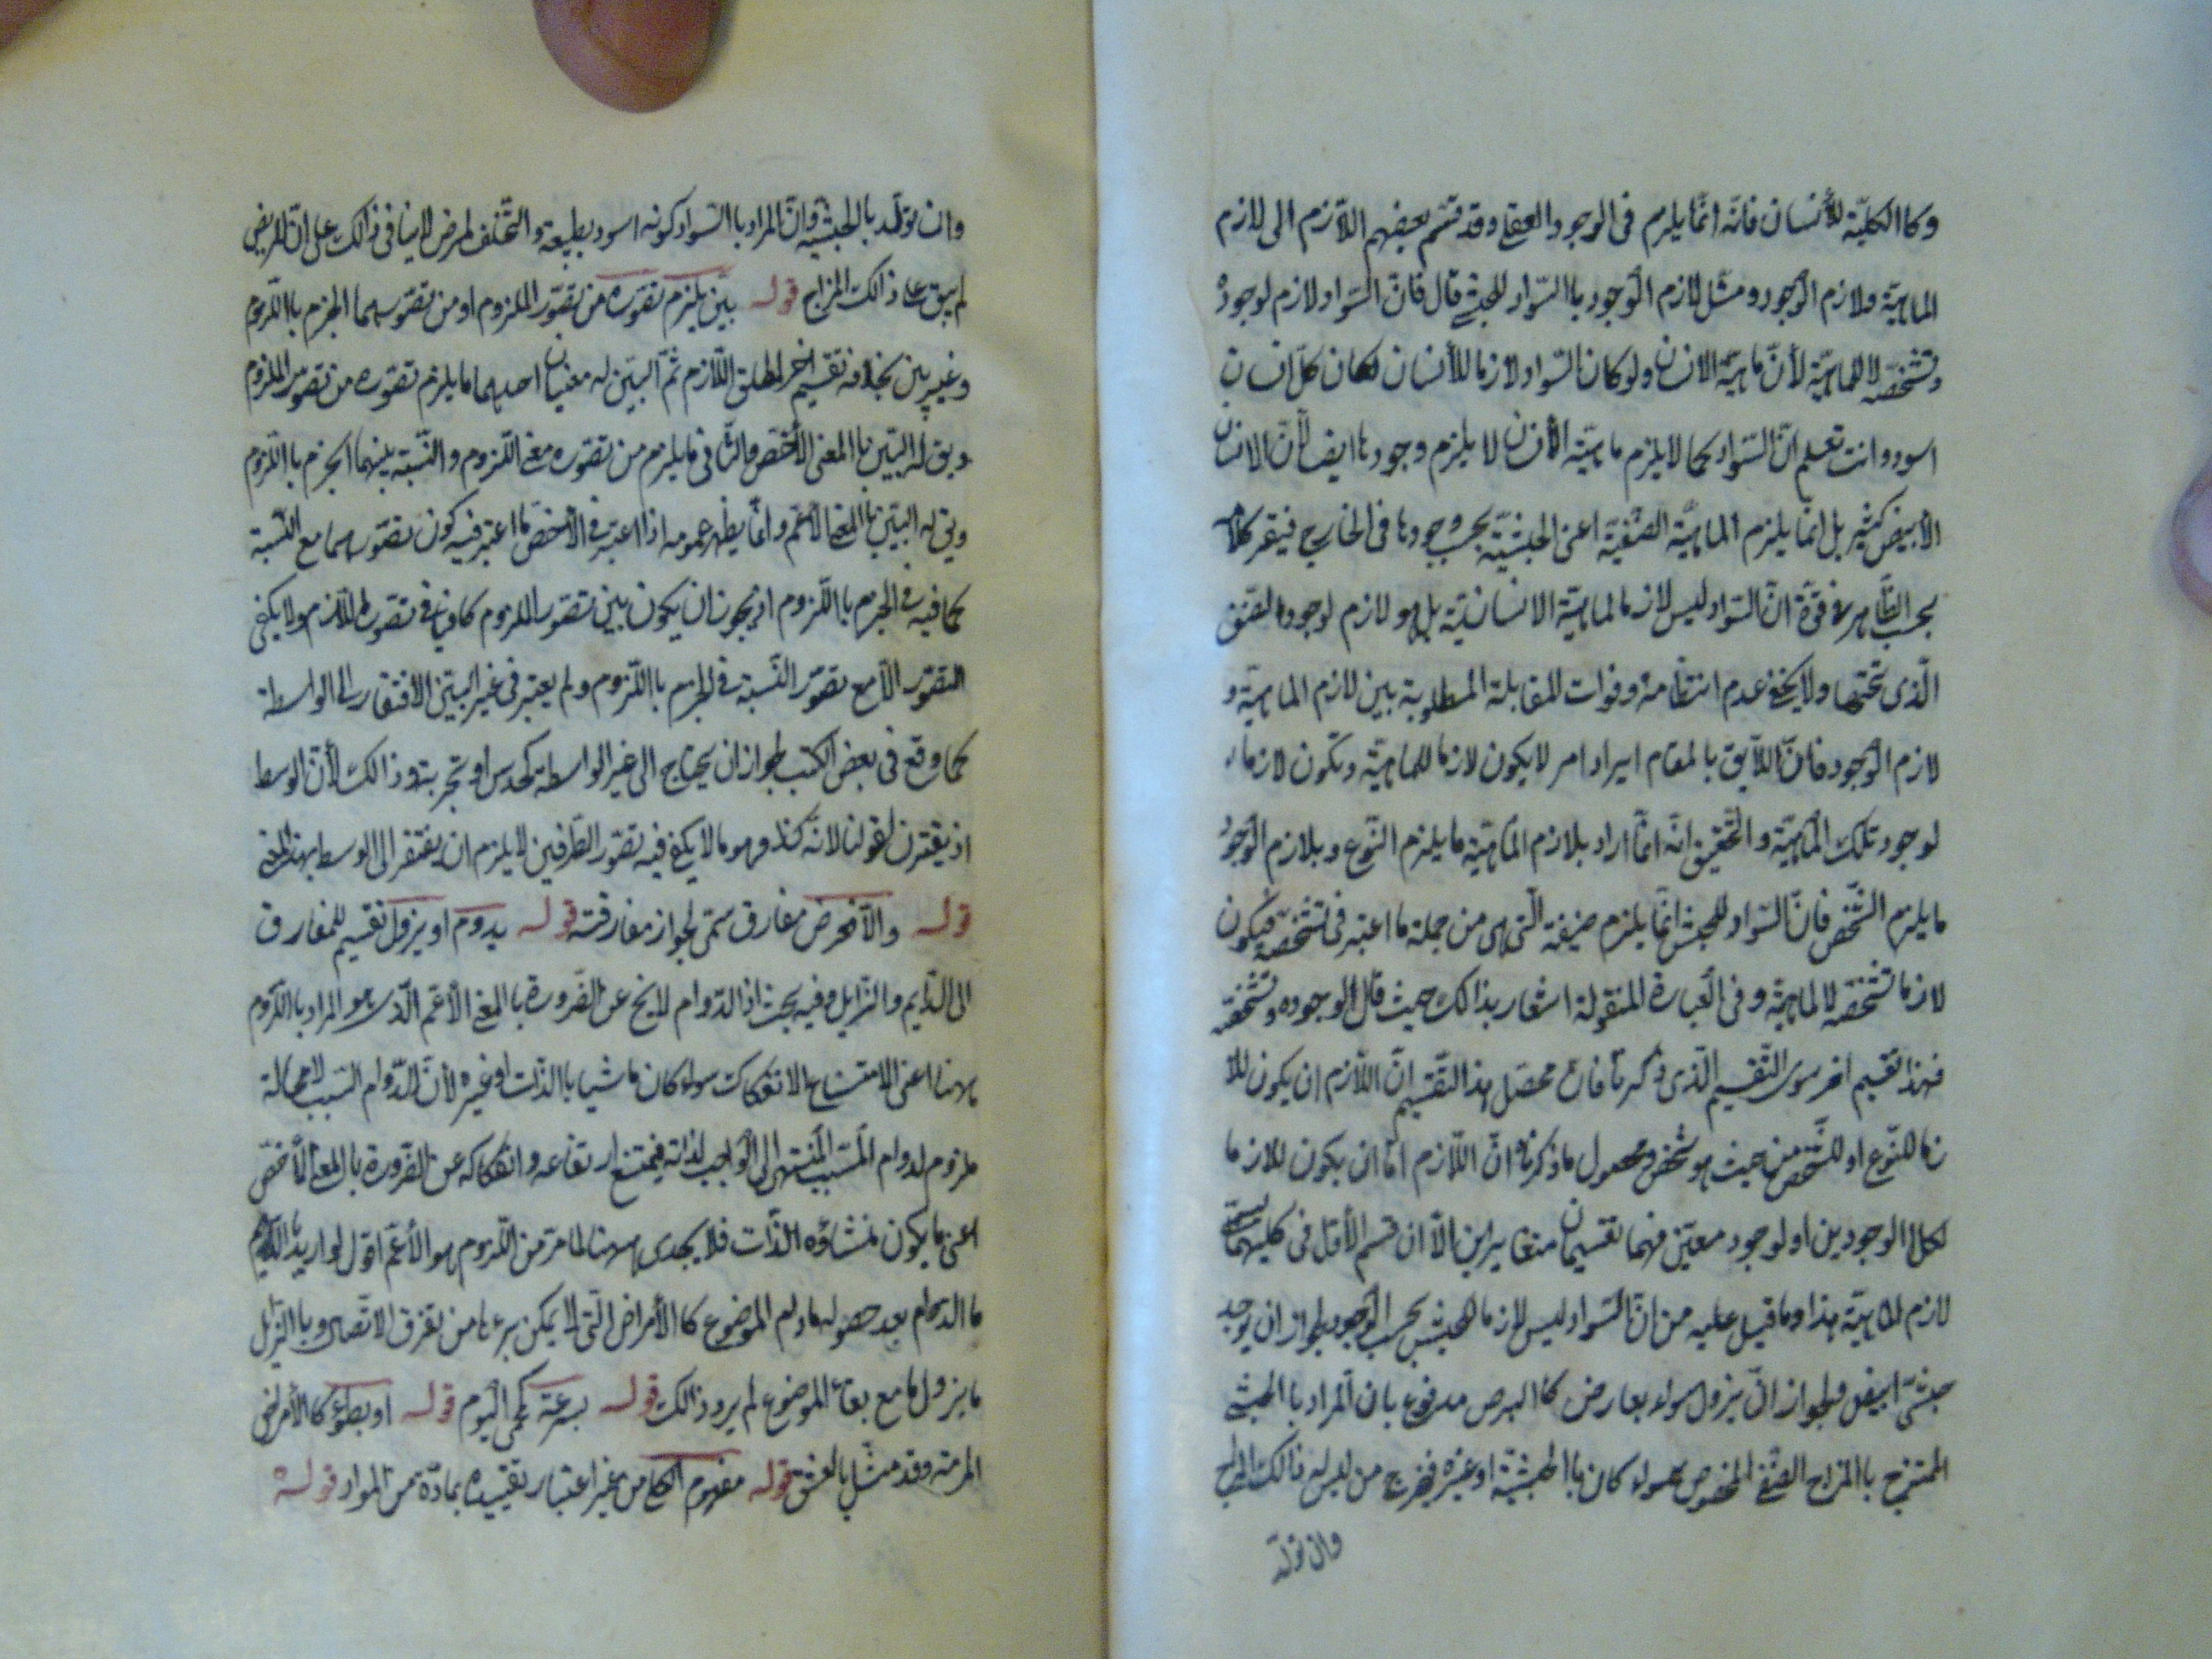 وكا الكليّة للأنسان فانّه انّما يلزم فى الوجود العقلى وقد قسّم بعضهم اللّازم الى لازم
الماهيّة ولازم الوجود ومثل لازم الوجود باالسّواد للحبشى قال فانّ السّواد لازم لوجوده
وتشخّصه لا للماهيّة لأنّ ماهيّة الانسان ولو كان السّواد لازما للأنسان لكان كلّ انسان
اسود وانت تعلم انّ السّواد كما لا يلزم ماهيّة الأنسان لا يلزم وجودها ايضا لأنّ الانسان
الأبيض كثير بل انّما يلزم الماهيّة الصّنفيّة اعنى الحبشيّة بحسب وجودها فى الخارج فيقر كلامه
بحسب الظّاهر فى قوّة انّ السّواد ليس لازما لماهيّة الانسانيّة بل هو لازم لوجود الصّنف
الّذى تحتها ولا يخفى عدم انتظامه وفوات للمقابلة المطلوبة بين لازم الماهيّة و
لازم الوجود فانّ اللّايق بالمقام ايراد امر لا يكون لازما للماهيّة ويكون لازما
لوجود تلك الماهيّة والتّحقيق انّه انّما اراد بلازم الماهيّة ما يلزم النّوع وبلازم الوجود
ما يلزم الشّخص فانّ السّواد للحبشى انّما يلزم صنفه الّتى هى من جملة ما اعتبر فى تشخّصه فيكون
لازما تشخّصه لا لماهيّة وفى العبارة المنقولة اشعار بذالك حيث قال لوجوده وتشخّصه
فهذا تقسيم اخر سوى التّقسيم الّذى ذكرنا فانّ محصّل هذا التّقسيم انّ اللّازم ان يكون للا
زما للنّوع او للشّخص من حيث هو شخص ومحصول ما ذكرناه انّ اللّازم امّا ان يكون للازما
لكلا الوجودين او لوجود معيّن فهما تقسيمان متغايران الّا ان قسم الأوّل فى كليهما يسمّى
لازم الماهيّة هذا وما قيل عليه من انّ السّواد ليس لازما للحبشى بحسب الوجود لجواز ان يوجد
حبشىّ ابيض ولجواز ان يزول سواده بعارض كا البرص مدفوع بان المراد با الحبشى
الممتزج باالمزاج الصّنفى المخصوص سواء كان باالحبشيّة او غيره فيخرج من ليس له ذالك المزاج
وان تولّد
وان تولّد بالحبشيّة وانّ المراد باالسّواد كونه اسود بطبيعة والتّخلّف لمرض لا ينافى ذالك على انّ المريض
لم يبق على ذالك المزاج قوله بيّن يلزم تصوّره من تصوّر الملزوم او من تصوّرهما الجزم باالّلزوم
وغير بيّن بخلافه تقسيم اخر لمطلق اللّازم ثمّ البيّن له معنيان احدهما ما يلزم تصوّره من تصوّر الملزوم
ويق له البيّن باالمعنى الأخصّ والثّانى ما يلزم من تصوّره مع الملزوم والنّسبة بينهما الجزم باالّلزوم
ويق له البيّن باالمعنى الأعمّ وانّما يظهر عمومه اذا اعتبر فى الأخصّ ما اعتبر فيه كون تصوّرهما مع النّسبة
كافيه فى الجزم باالّلزوم اذ يجوز ان يكون بين تصوّر الملزوم كافيا فى تصوّر اللّازم ولا يكفى
التصوّر الّا مع تصوّر النّسبة فى الجزم باالّلزوم ولم يعتبر فى غير البيّن الافتقار الى الواسطة
كما وقع فى بعض الكتب لجواز ان يحتاج الى غير الواسطة كحدس او تجربة وذالك لأنّ الوسط
اذ يقترن لقولنا لانّه كذا وهو ما لا يكفى فيه تصوّر الطّرفين لا يلزم ان يفتقر الى الوسط بهذا المعنى
قوله والّا فعرض مفارق سمّى لجواز مفارقته قوله يدوم او يزول تقسيم للمفارق
الى الدّايم والزّايل وفيه بحث اذ الدّوام لا يخ عن الضّرورة بالمعنى الأعمّ الّذى هو المراد باالّلزوم
ههنا اعنى الامتناع الانفكاك سواء كان ناشيا باالذّات او غيره لأنّ الدّوام السبب لا محالة
ملزوم لدوام المسبّب المنتهى الى الواجب لذاته فيمتنع ارتفاعه وانفكاكه عن الضّرورة باالمعنى الأخصّ
اعنى ما يكون منشاؤه الذّات فلا يجدى ههنا لما مرّ من اللّزوم هو الأعمّ اقول لو اريد باالدّايم
ما الدوام بعد حصوله ما دام الموضوع كا الأمراض الّتى لا يمكن برءها من تفرّق الاتّصال وبا الزّايل
ما يزول ما مع بقاء الموضوع لم يرد ذالك قوله بسرعة كحمى اليوم قوله او بطوء كا الأمراض
المزمنه وقد مثّل بالعشق قوله مفهوم الكلى من غير اعتبار تقييده بمادّة من المواد قوله